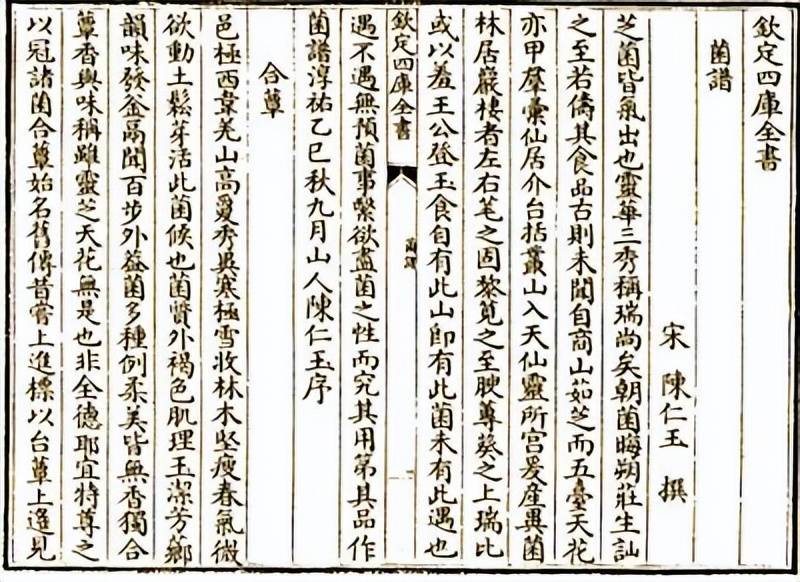 欽定四庫全書
菌譜
宋 陳仁玉 撰
芝菌皆氣出也靈華三秀稱瑞尚矣朝菌晦朔莊生訕
之至若儔其食品古則未聞自商山茹芝而五臺天花
亦甲羣彙仙居介台括叢山入天仙靈所宮爰産異菌
林居巖棲者左右芼之固黎莧之至腴蓴葵之上瑞比
或以羞王公登玉食自有此山即有此菌未有此遇也
欽定四庫全書
遇不遇無預菌事繫欲盡菌之性而究其用第其品作
菌譜淳祐乙巳秋九月山人陳仁玉序
合蕈
邑極西韋羌山高夐秀異寒極雪收林木堅瘦春氣微
欲動土鬆芽活此菌候也菌質外褐色肌理玉潔芳薌
韻味發釜鬲聞百步外蓋菌多種例柔美皆無香獨合
蕈香與味稱雖靈芝天花無是也非全德耶宜特尊之
以冠諸菌合蕈始名舊傳昔嘗上進標以台蕈上遙見